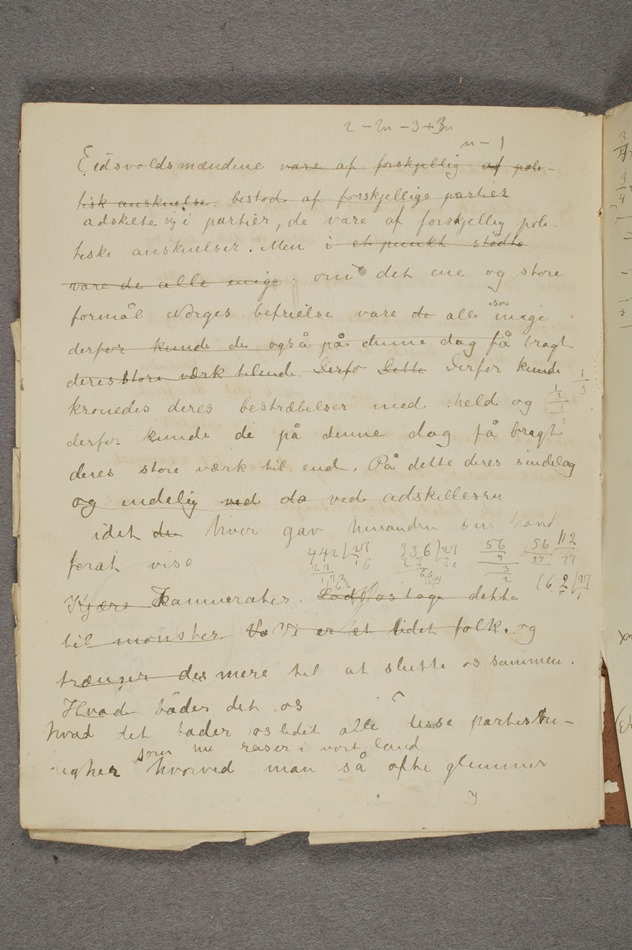 2 – 2n – 3 + 3n
n – 1
Eidsvoldsmændene vare af forskjellig af poli-
tisk anskuelse. bestod af forskjellige partier
adskilte sig i partier, de vare af forskjellig poli-
tiske anskuelser. Men i et punkt stødte
vare de alle enige. om det ene og store
formål Norges befrielse vare de alle enige
derfor kunde de også på denne dag få bragt
deres store værk tilend. Derfo Dette Derfor kunde
kronedes deres bestræbelser med held og
derfor kunde de på denne dag få bragt
deres store værk til end. På dette deres sindelag
og endelig ved da ved adskillelsen
idet de hver gav hinanden sin hånd
forat vise
442 | 27 236 | 27 56 56 112
162 | 27
Kjære Kammerater. Lad os tage dette
til mønster Vi er et lidet folk. og
trænger des mere til at slutte os sammen.
Hvad båder det os
hvad det båder os lidet alle disse partistri-
digheder som nu raser i vort land
hvorved man så ofte glemmer